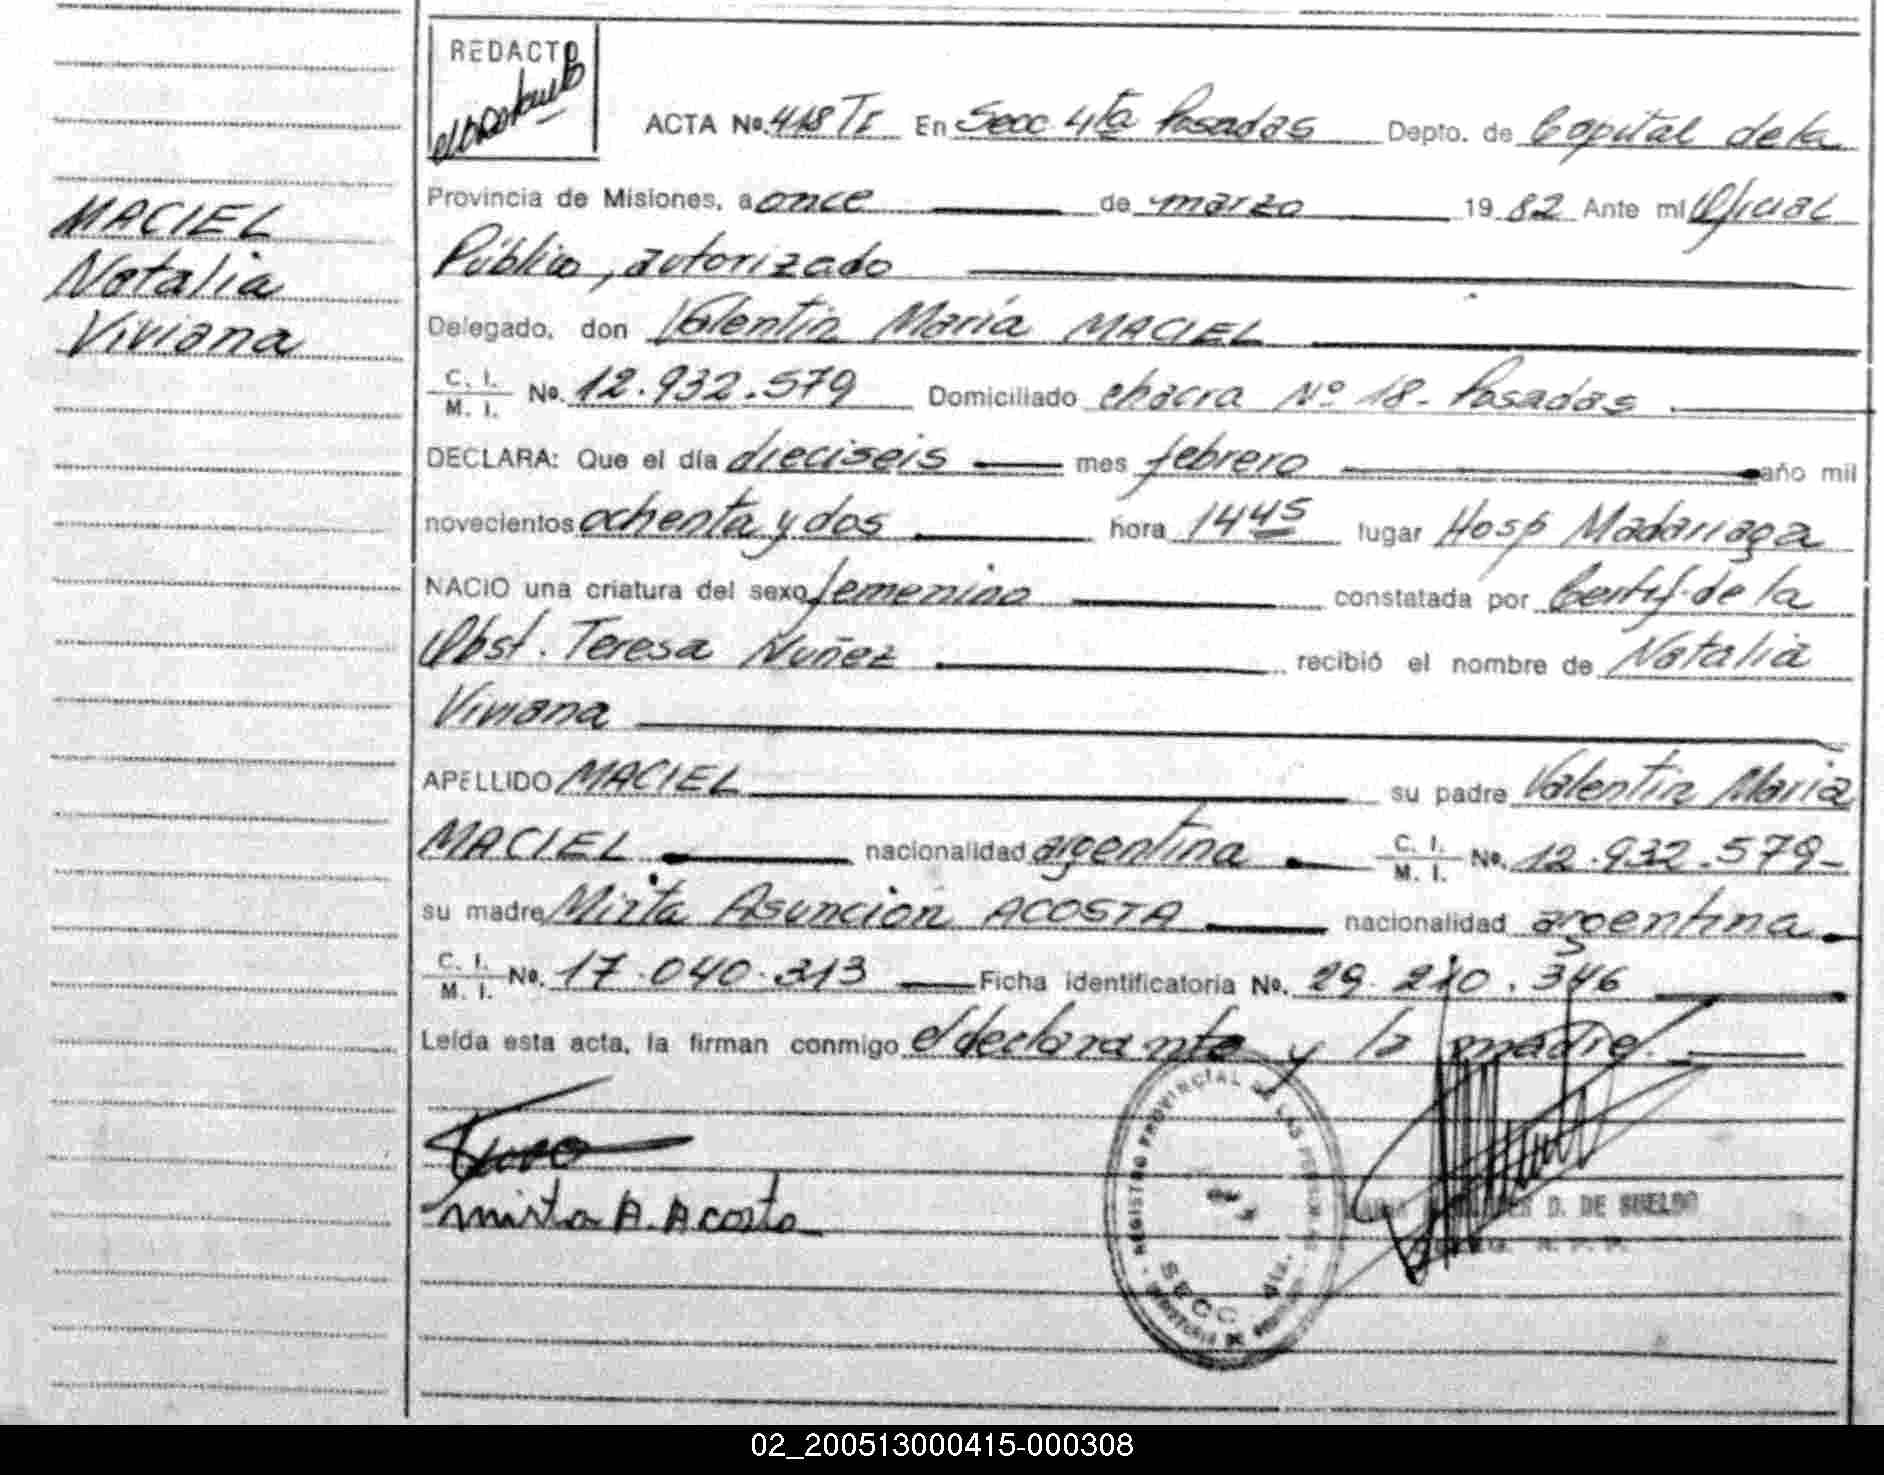 REDACTO
ACTA No. 418 TI En Secc 4ta Posadas Depto. de Capital de la
Provincia de Misiones, a once de marzo 1982 Ante mi Oficial
Público, autorizado
MACIEL
Natalia
Viviana
Delegado, don Valentín María MACIEL
C. I. M. I. No. 12.932.579 Domiciliado chacra Nº 18 - Posadas
DECLARA: Que el día dieciseis mes febrero año mil
novecientos ochenta y dos hora 1445 lugar Hosp Madariaga
NACIO una criatura del sexo femenino constatada por Certif. de la
Obst. Teresa Nuñez recibió el nombre de Natalia
Viviana
APELLIDO MACIEL su padre Valentín María
MACIEL nacionalidad argentina C. I. M. I. No. 12.932.579-
su madre Mirta Asunción ACOSTA nacionalidad argentina
C. I. M. I. No. 17.040.313 Ficha identificatoria No. 29.210.346
Leída esta acta, la firman conmigo el declarante y la madre.
mirta A. Acosta
REGISTRO PROVINCIAL DE LAS PERSONAS
SECC. 4ta.
D. DE SUELDO
02_200513000415-000308